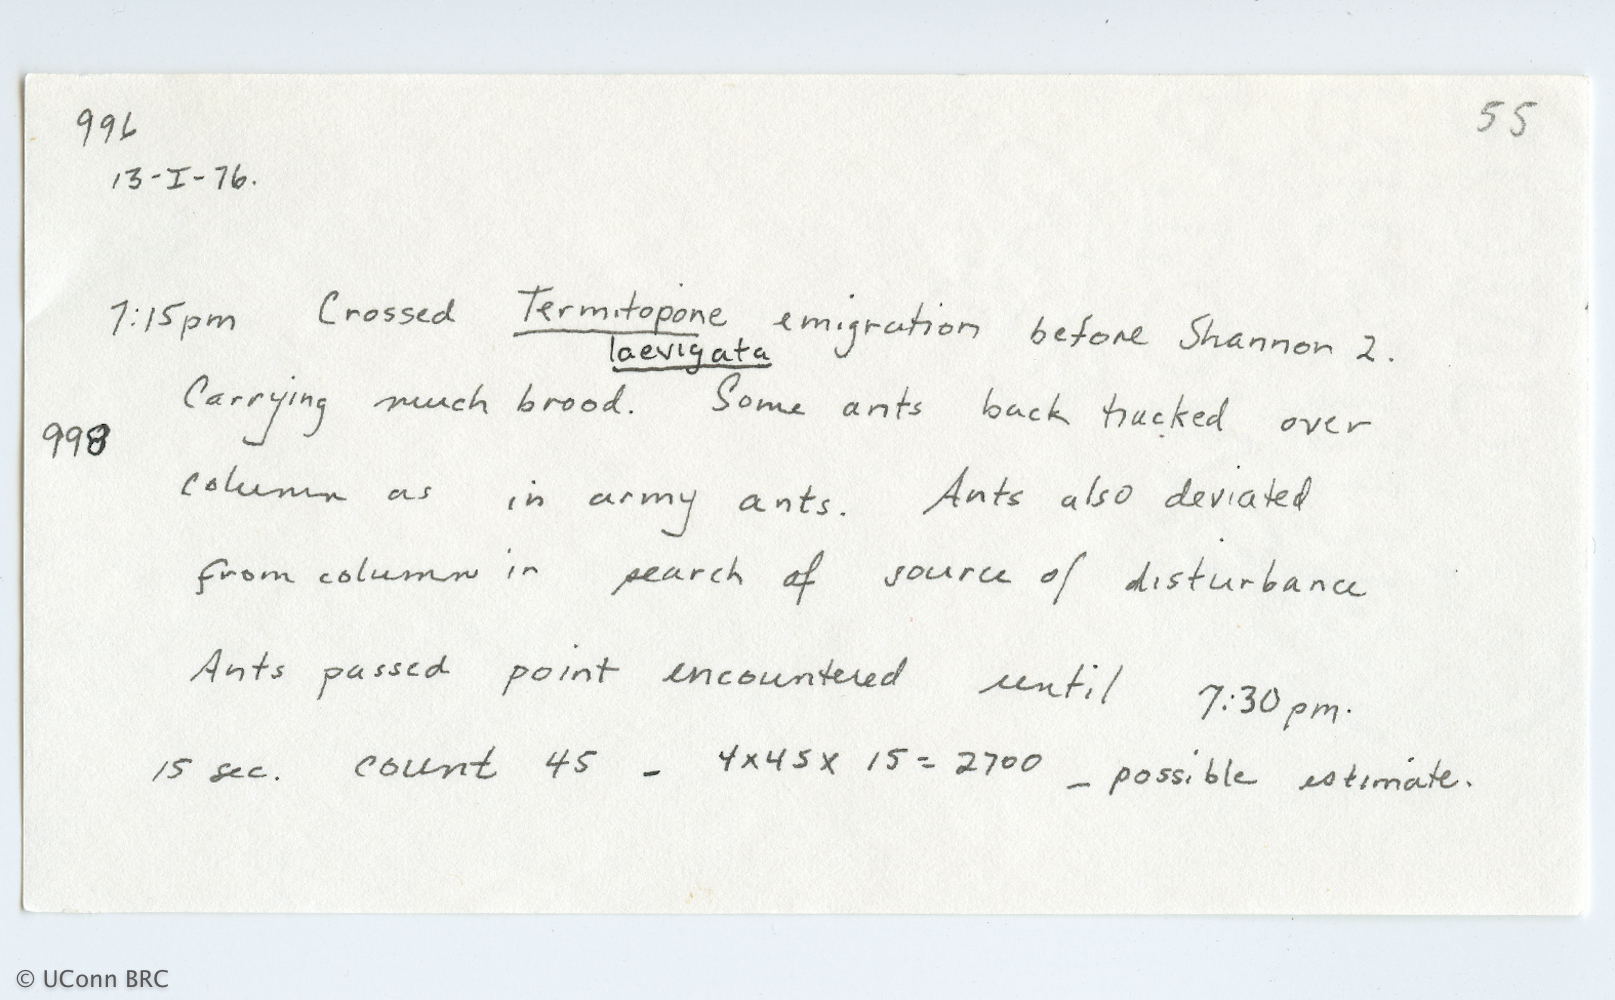 996
55
13-I-76.
7:15pm Crossed Termitopone emigration before Shannon 2.
laevigata
Carrying much brood. Some ants back tracked over
998
column as in army ants. Ants also deviated
from column in search of source of disturbance
Ants passed point encountered until 7:30pm.
15 sec. count 45 - 4x45x 15 = 2700 - possible estimate.
© UConn BRC